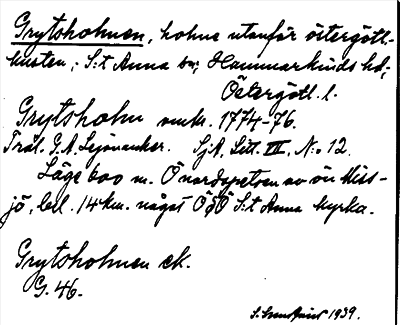 Grytsholmen, holme utanför östergötl.-
kusten; S:t Anna sn; Hammarkinds hd;
Östergötl. l.
Grytsholm omkr. 1774-76.
Träl. G. A. Lejonancker. SjA, Litt. III, N:o 12.
Läge 600 m. Ö nordspetsen av ön Miss-
jö, bel. 14 km. något ÖSÖ S:t Anna kyrka.
Grytsholmen ek.
G. 46.
1939.